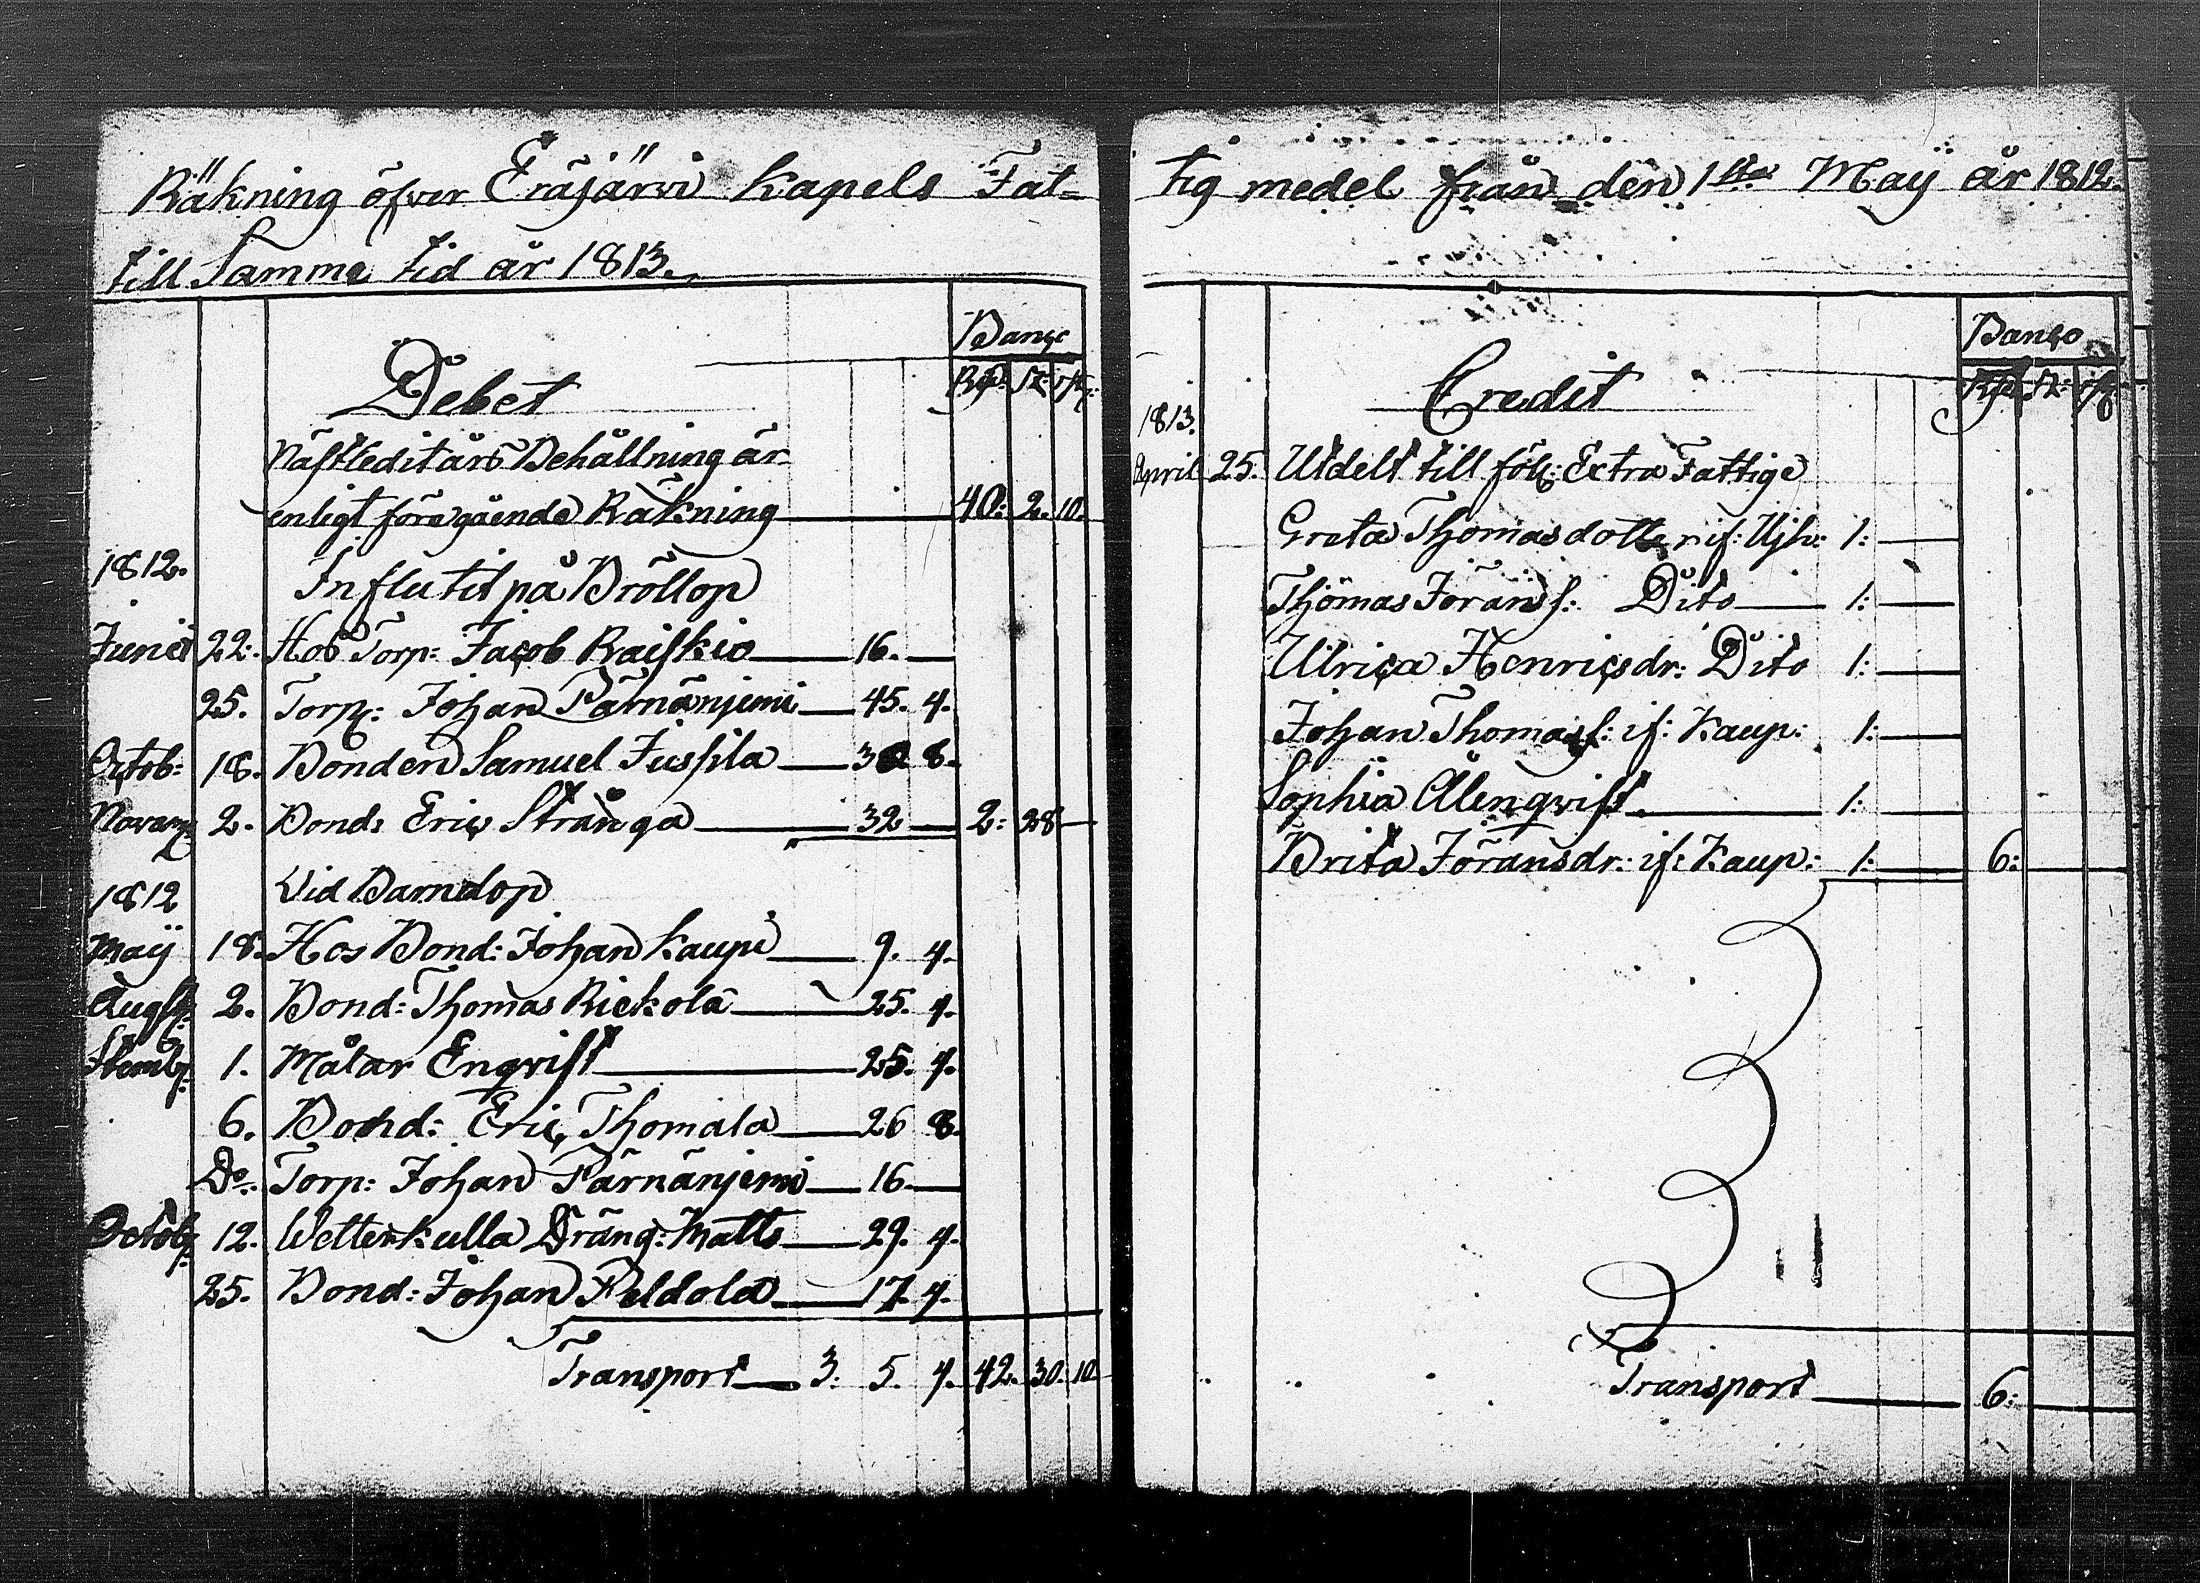 Räkning öfver Eräjärvi Kapels Fat-
till Samma tid år 1813.
Banco
Debet
Rd: sk: rst:
Nästleditårs Behållning är
enligt föregående Räkning 40: 2. 10.
1812. Influtit på Bröllop
Junii 22. Hos Torp: Jacob Raiskio 16.
25. Torp: Johan Pärnänjemi 45. 4.
Octob: 18. Bonden Samuel Jussila 30 8.
Novemb: 2. Bond: Eric Stränga 32 2: 28
1812 Vid Barndop
Maij 18. Hos Bond: Johan Kaupi 9. 4.
Augst: 2. Bond: Thomas Rickola 25. 4.
1. Målar Enqvist 25. 4.
6. Bond: Eric Thomala 26 8.
Do. Torp: Johan Pärnänjemi 16
Octob: 12. Wetterkulla Dräng: Matts 29. 4.
25. Bond: Johan Peldola 17. 4.
Transport 3. 5. 4. 42. 30. 10.
tig medel från den 1sta Maij år 1812.
Banco
Credit
Rd: sk: rst:
1813.
April 25. Utdelt till följ: Extra Fattige
Greta Thomasdotter if: Ujh: 1:
Thomas Jöransf: Dito 1:
Ulrica Henricsdr: Dito 1:
Johan Thomasf: if: Kaup: 1:
Sophia Alenqvist 1:
Brita Jöransdr: if: Kaup: 1: 6:
Transport 6: